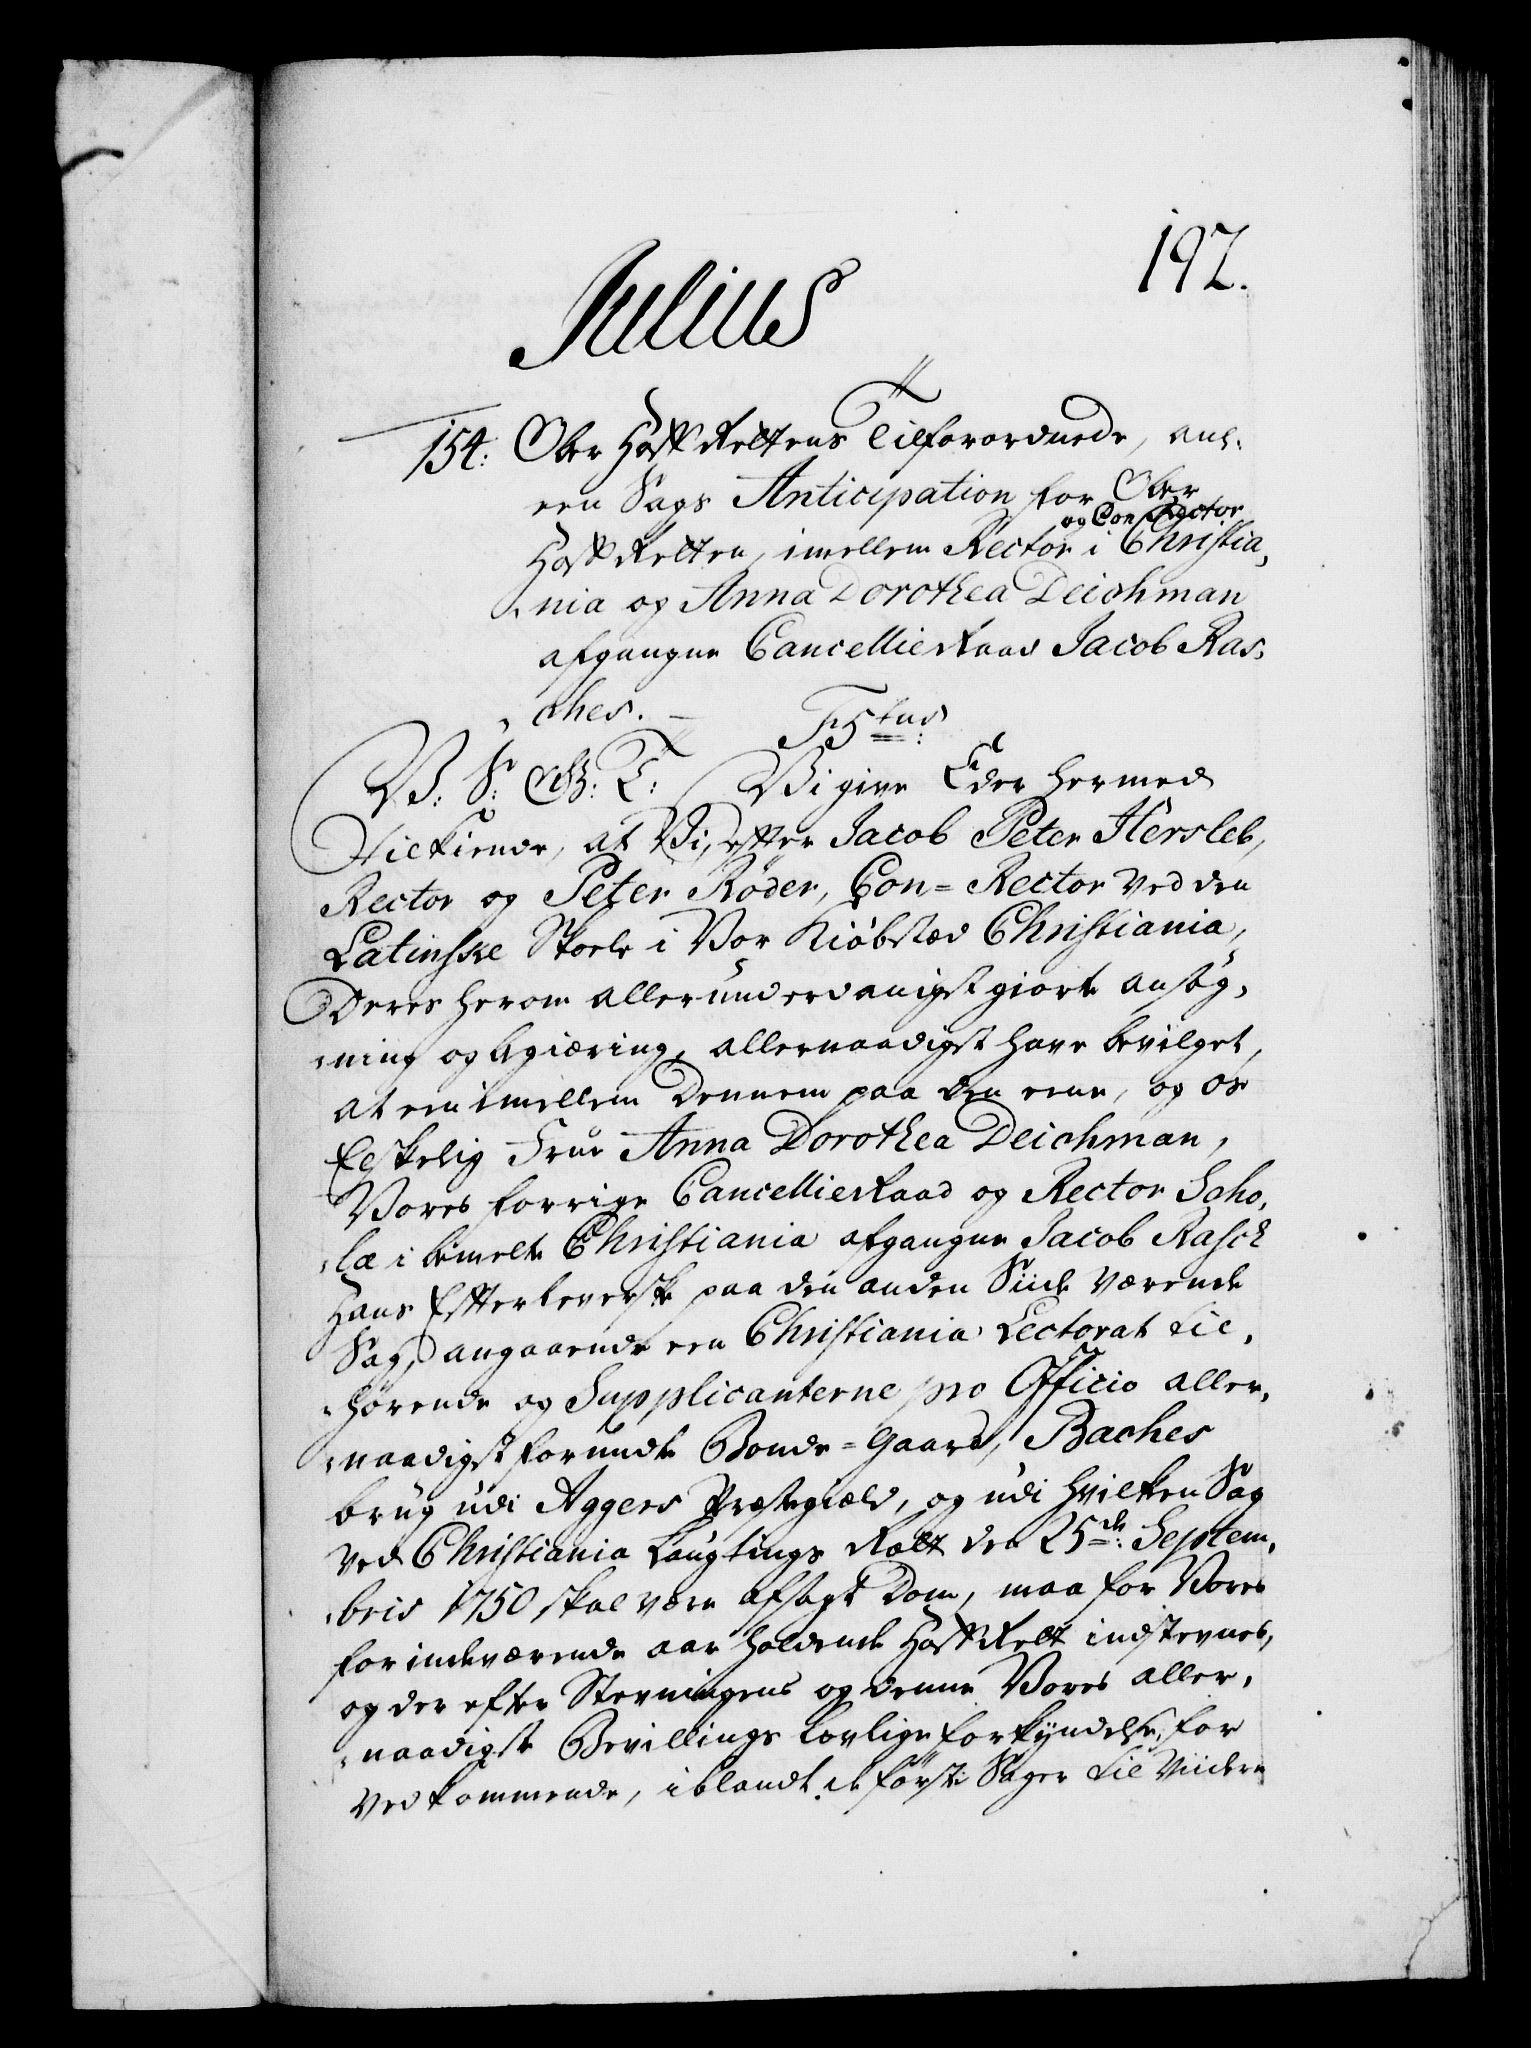 192.
Julius
154. Ober Hoff Rettens Tilforordnede, anl:
een Sags Anticipation for Ober
og Con Rector
Hoff Retten, imellem Rector i Christia,
nia og Anna Dorothea Deichman
afgangne Cancellie Raad Jacob Ras,
ches. F5tus
V: S: G: T: Vi give Eder hermed
Tilkiende, at Vi, efter Jacob Peter Hersleb,
Rector og Peter Röder, Con=Rector ved den
Latinske Skole i Vor Kiöbstæd Christiania,
Deres herom allerunderdanigst giorte ansög,
ning og begiæring, allernaadigst have bevilget,
at een imellem Dennem paa den eene, og os
Elskelig Frue Anna Dorothea Deichman,
Vores forrige Cancellie Raad og Rector Scho,
læ i bemelte Christiania afgangne Jacob Rasch
Hans Effterleverske paa den anden Siide værende
Sag, angaaende een Christiania Lectorat til,
hørende og Supplicanterne pro Officio aller,
naadigst forundte Bonde=Gaard, Baches
brug udi Aggers Præstegiæld, og udi hvilken Sag
ved Christiania Laugtings Rætt den 25de Septem,
bris 1750 skal være afsagt Dom, maa for Vores
for indeværende aar holdende Hoff Rett indstevnes,
og der efter Stevningens og denne Vores aller,
naadigste Bevillings lovlige forkyndelse for
vedkommende, iblandt de förste Sager til viidere